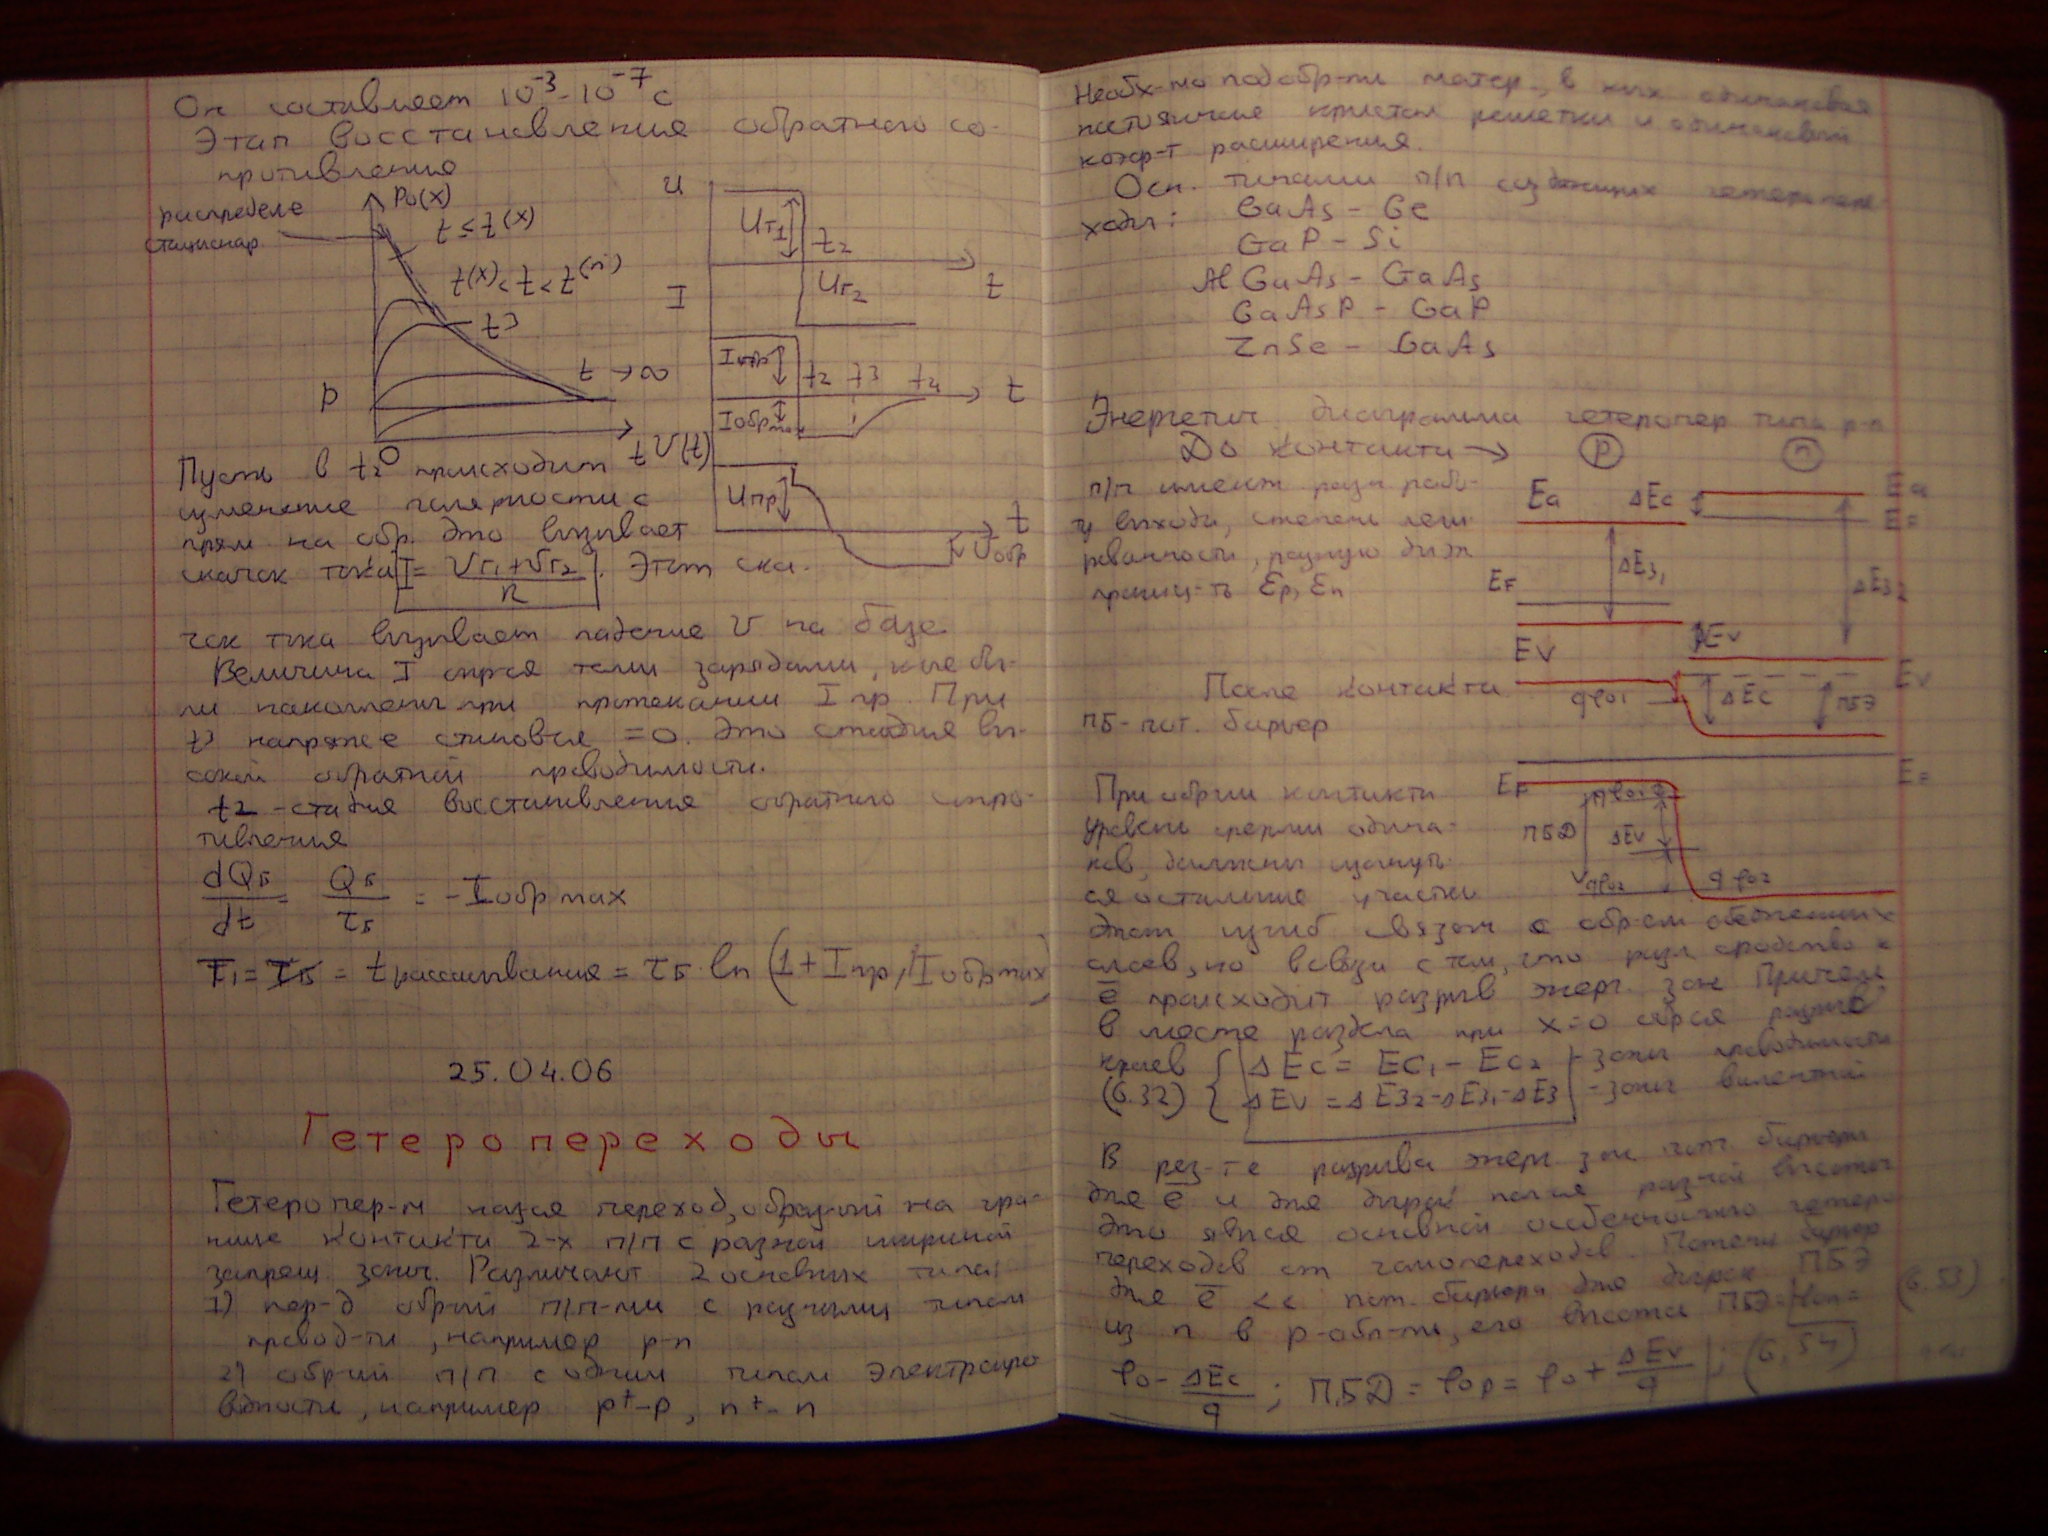 Он составляет 10⁻³-10⁻⁷ с
Этап восстановления обратного со-
противление
распределе
стационар.
P₀(x)
t ≤ t(x)
t(x) < t < t(n)
t3
t → ∞
P
t
0
U
Uг1
t2
Uг2
t
I
Iпр
t2 t3 t4
t
Iобр max
U(t)
Uпр
t
Uобр
Пусть в t2 происходит
изменение полярности с
прям на обр. Это вызывает
скачок тока I = (Uг1+Uг2)/R. Этот ска-
чок тока вызывает падение U на базе
Величина I опр-ся теми зарядами, кые бы-
ли накоплены при протекании I пр. При
t3 напряж-е становися =0. Это стадия вы-
сокой обратной проводимости.
t2 - стадия восстановления обратного сопро-
тивления
dQБ/dt = QБ/τБ = -Iобр max
T1 = TБ = t рассасывания = τБ · ln (1 + Iпр / Iобр max)
25.04.06
Гетеропереходы
Гетеропер-м назся переход, образ-ый на гра-
нице контакта 2-х п/п с разной шириной
запрещ. зоны. Различают 2 основных типа:
1) пер-д обрый п/п-ми с разными типом
провод-ти, например p-n
2) обрый п/п с одним типом электропро
водности, например p⁺-p, n⁺-n
Необх-мо подобр-ти матер., в кых одинаковая
постоянные кристал решетки и одинаковый
коэф-т расширения.
Осн. типами п/п создающих гетеропере
ходы:
GaAs - Ge
GaP - Si
AlGaAs - GaAs
GaAsP - GaP
ZnSe - GaAs
Энергетич. диаграмма гетеропер типа p-n
До контакта → (p) (n)
п/п имеют разн рабо-
ту выхода, степень леги-
рованности, разную диэл
прониц-ть Ɛp, Ɛn
Ea ΔEc Ea
EF
ΔEз1
EF ΔEз2
EV ΔEv
Ev
После контакта
qφ01 ΔEc ПБЭ
ПБ - пот. барьер
EF
При обрии контакта
уровень ферми одина-
ков, должны изогнуть-
ся остальные участки
ПБД ΔEv
qφ02
Этот изгиб связан с обр-ем обедненных
слоев, но в связи с тем, что разл сродство к
ē происходит разрыв энерг. зон Причем
в месте раздела при x=0 обрся разрыв
краев { ΔEc = Ec1 - Ec2 - зоны проводимости
(6.32) { ΔEv = ΔEз2-ΔEз1-ΔEз - зоны валентной
В рез-те разрыва энерг зон пот. барьеры
для ē и для дырок разной высоты
Это явлся основной особенностью гетеро
переходов от гомопереходов. Потенц барьер
для ē << пот. барьера для дырок ПБЭ
из n в p-обл-ть, его высота ПБЭ = φ0n = (6.53)
φ0 - ΔEc/q ; ПБД = φ0p = φ0 + ΔEv/q ; (6.54)